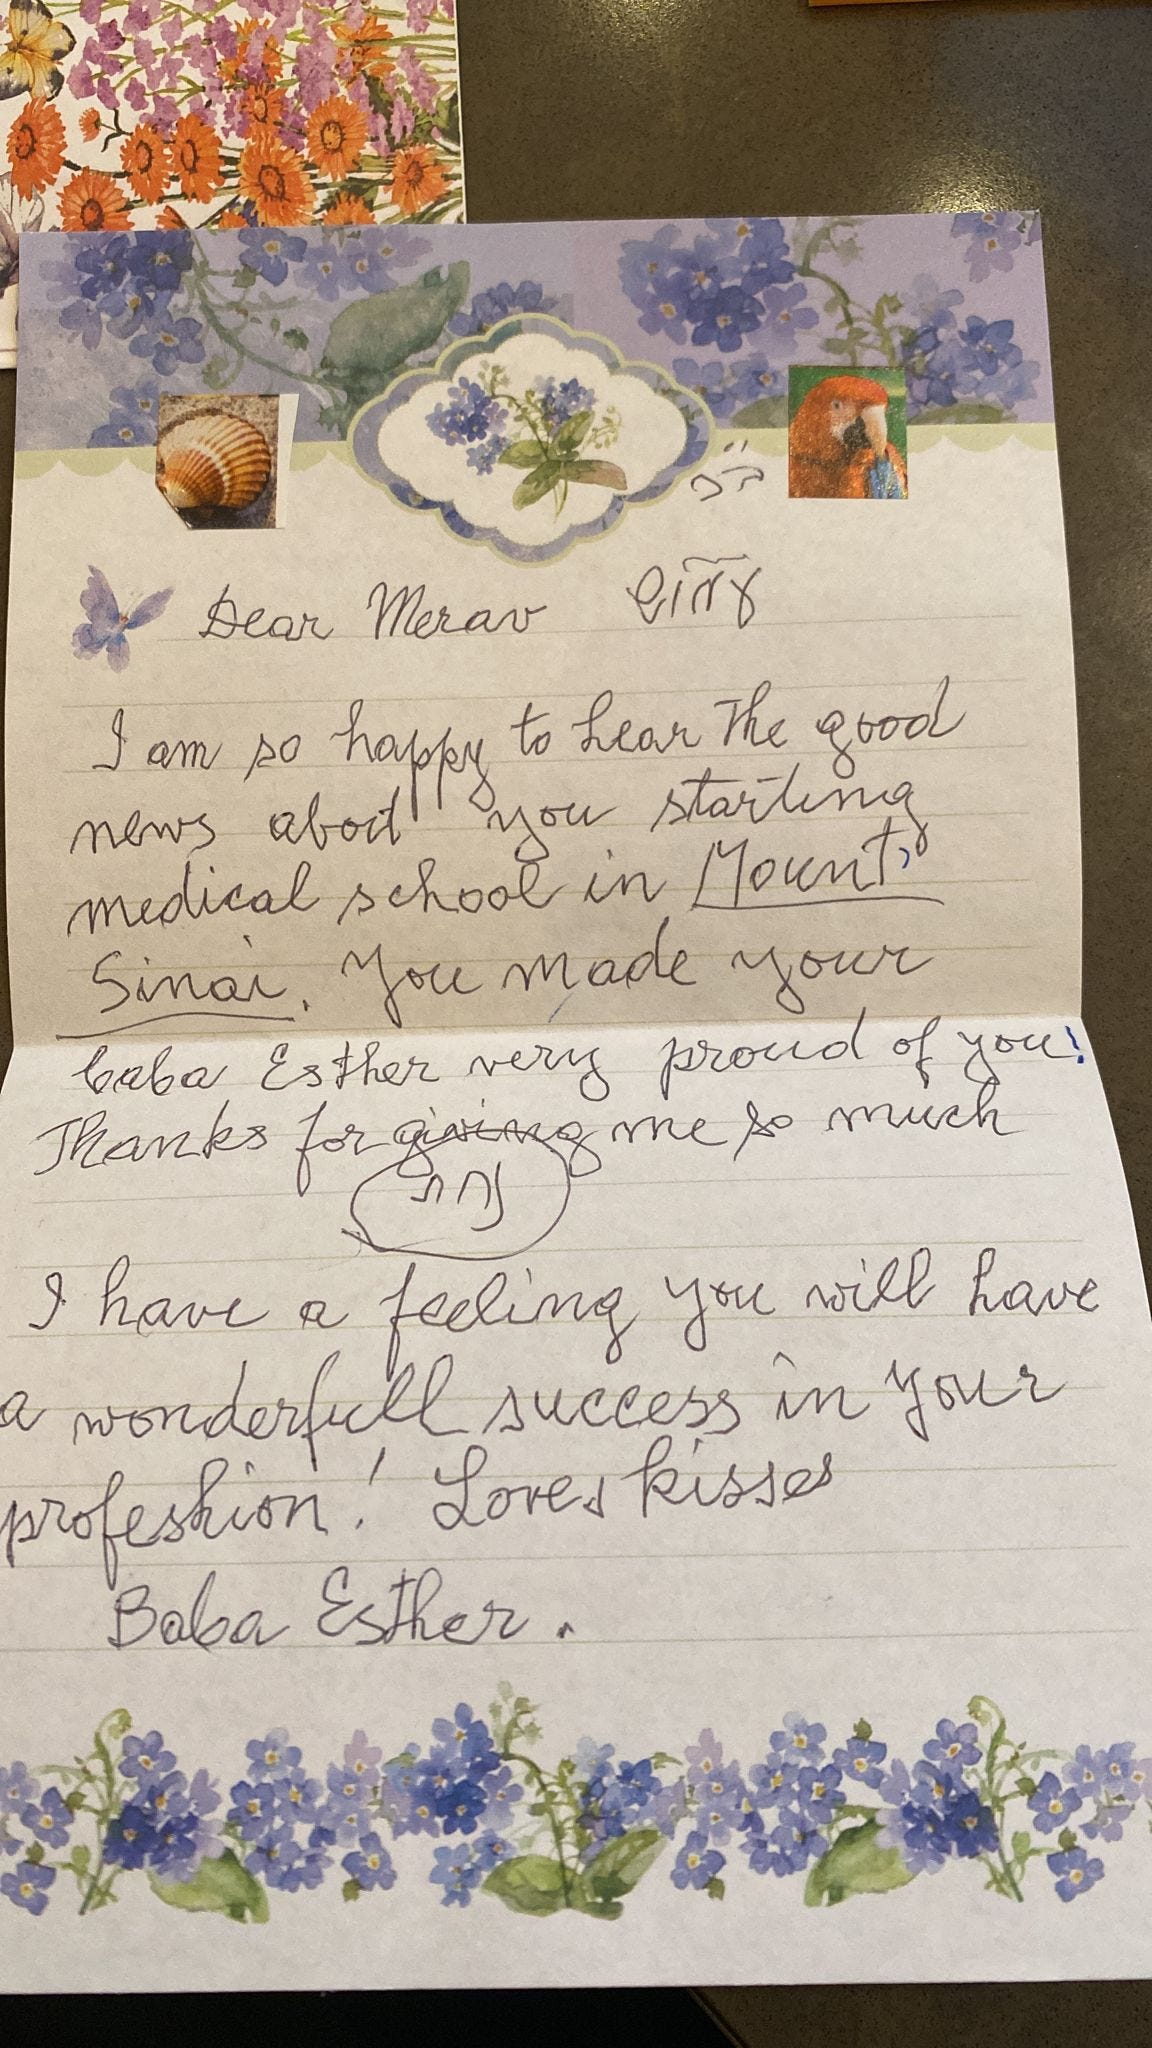 Dear Merav
I am so happy to hear the good
news about you starting
medical school in Mount
Sinai. You made your
baba Esther very proud of you!
Thanks for giving me so much
נחת
I have a feeling you will have
a wonderfull success in your
profeshion! Love & kisses
Baba Esther.